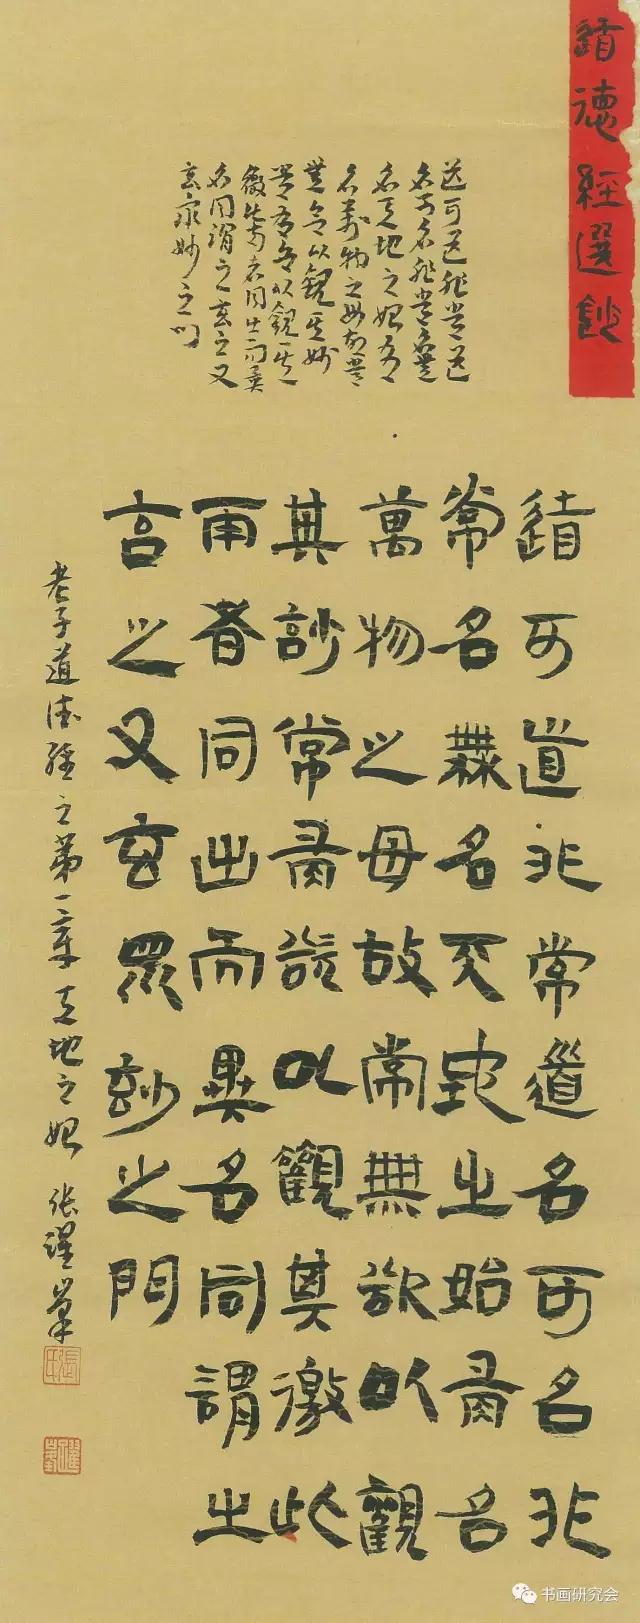 道德經選鈔
道可道非常道
名可名非常名無
名天地之始有
名萬物之母故常
無欲以觀其妙
常有欲以觀其
徼此兩者同出而異
名同謂之玄玄之又
玄衆妙之门
道可道非常道名可名非
常名無名天地之始有名
萬物之母故常無欲以觀
其玅常有欲以觀其徼此
兩者同出而異名同謂之
玄之又玄眾玅之門
老子道德經之第一章天地之始 张
張氏
书画研究会